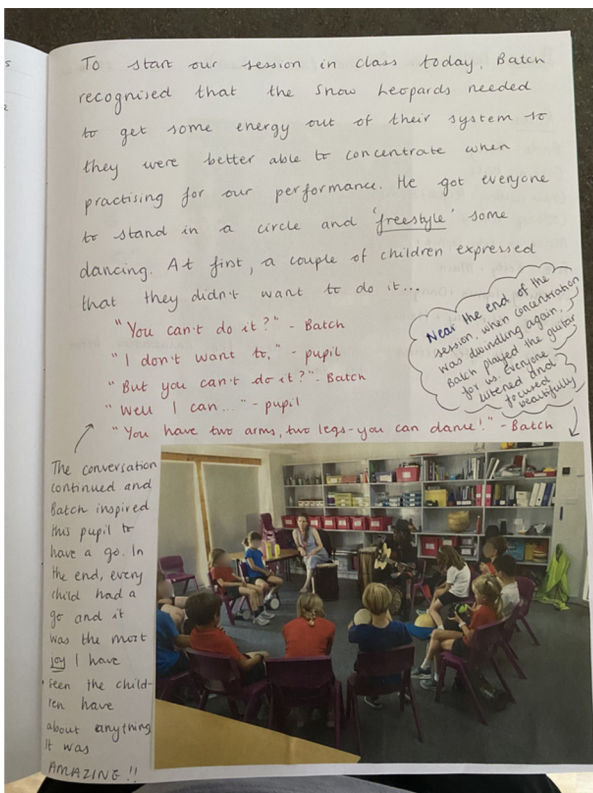 To start our session in class today, Batch
recognised that the Snow Leopards needed
to get some energy out of their system so
they were better able to concentrate when
practising for our performance. He got everyone
to stand in a circle and 'freestyle' some
dancing. At first, a couple of children expressed
that they didn't want to do it...
"You can't do it?" - Batch
"I don't want to." - pupil
"But you can't do it?" - Batch
"Well I can..." - pupil
"You have two arms, two legs - you can dance!" - Batch
Near the end of the
session, when concentration
was dwindling again,
Batch played the guitar
for us. everyone
listened and
focused
beautifully
The conversation
continued and
Batch inspired
this pupil to
have a go. In
the end, every
child had a
go and it
was the most
joy I have
seen the child-
ren have
about anything
It was
AMAZING!!